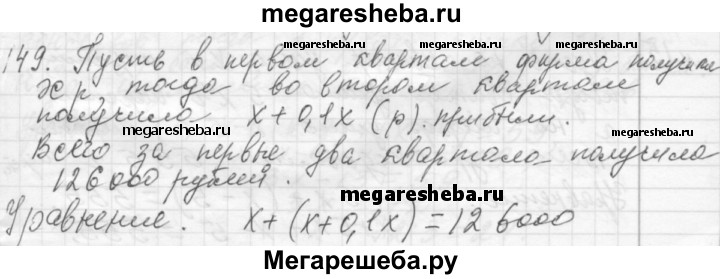 megaresheba.ru
149. Пусть в первом квартале фирма получила
x р, тогда во втором квартале
megaresheba.ru
получила x + 0,1x (р). прибыли.
megaresheba.ru
Всего за первые два квартала получила
126000 рублей.
megaresheba.ru
Уравнение. x+(x+0,1x)=126000
Мегарешеба.ру